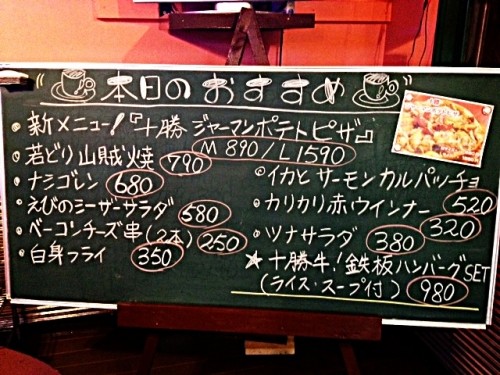 本日のおすすめ
・新メニュー!『十勝 ジャーマンポテトピザ』
M 890 / L 1590
・若どり山賊焼 790
・ナシゴレン 680
・えびのシーザーサラダ 580
・ベーコンチーズ串(2本) 250
・白身フライ 350
・イカとサーモンカルパッチョ 520
・カリカリ赤ウインナー 320
・ツナサラダ 380
★十勝牛!鉄板ハンバーグSET
(ライス・スープ付) 980